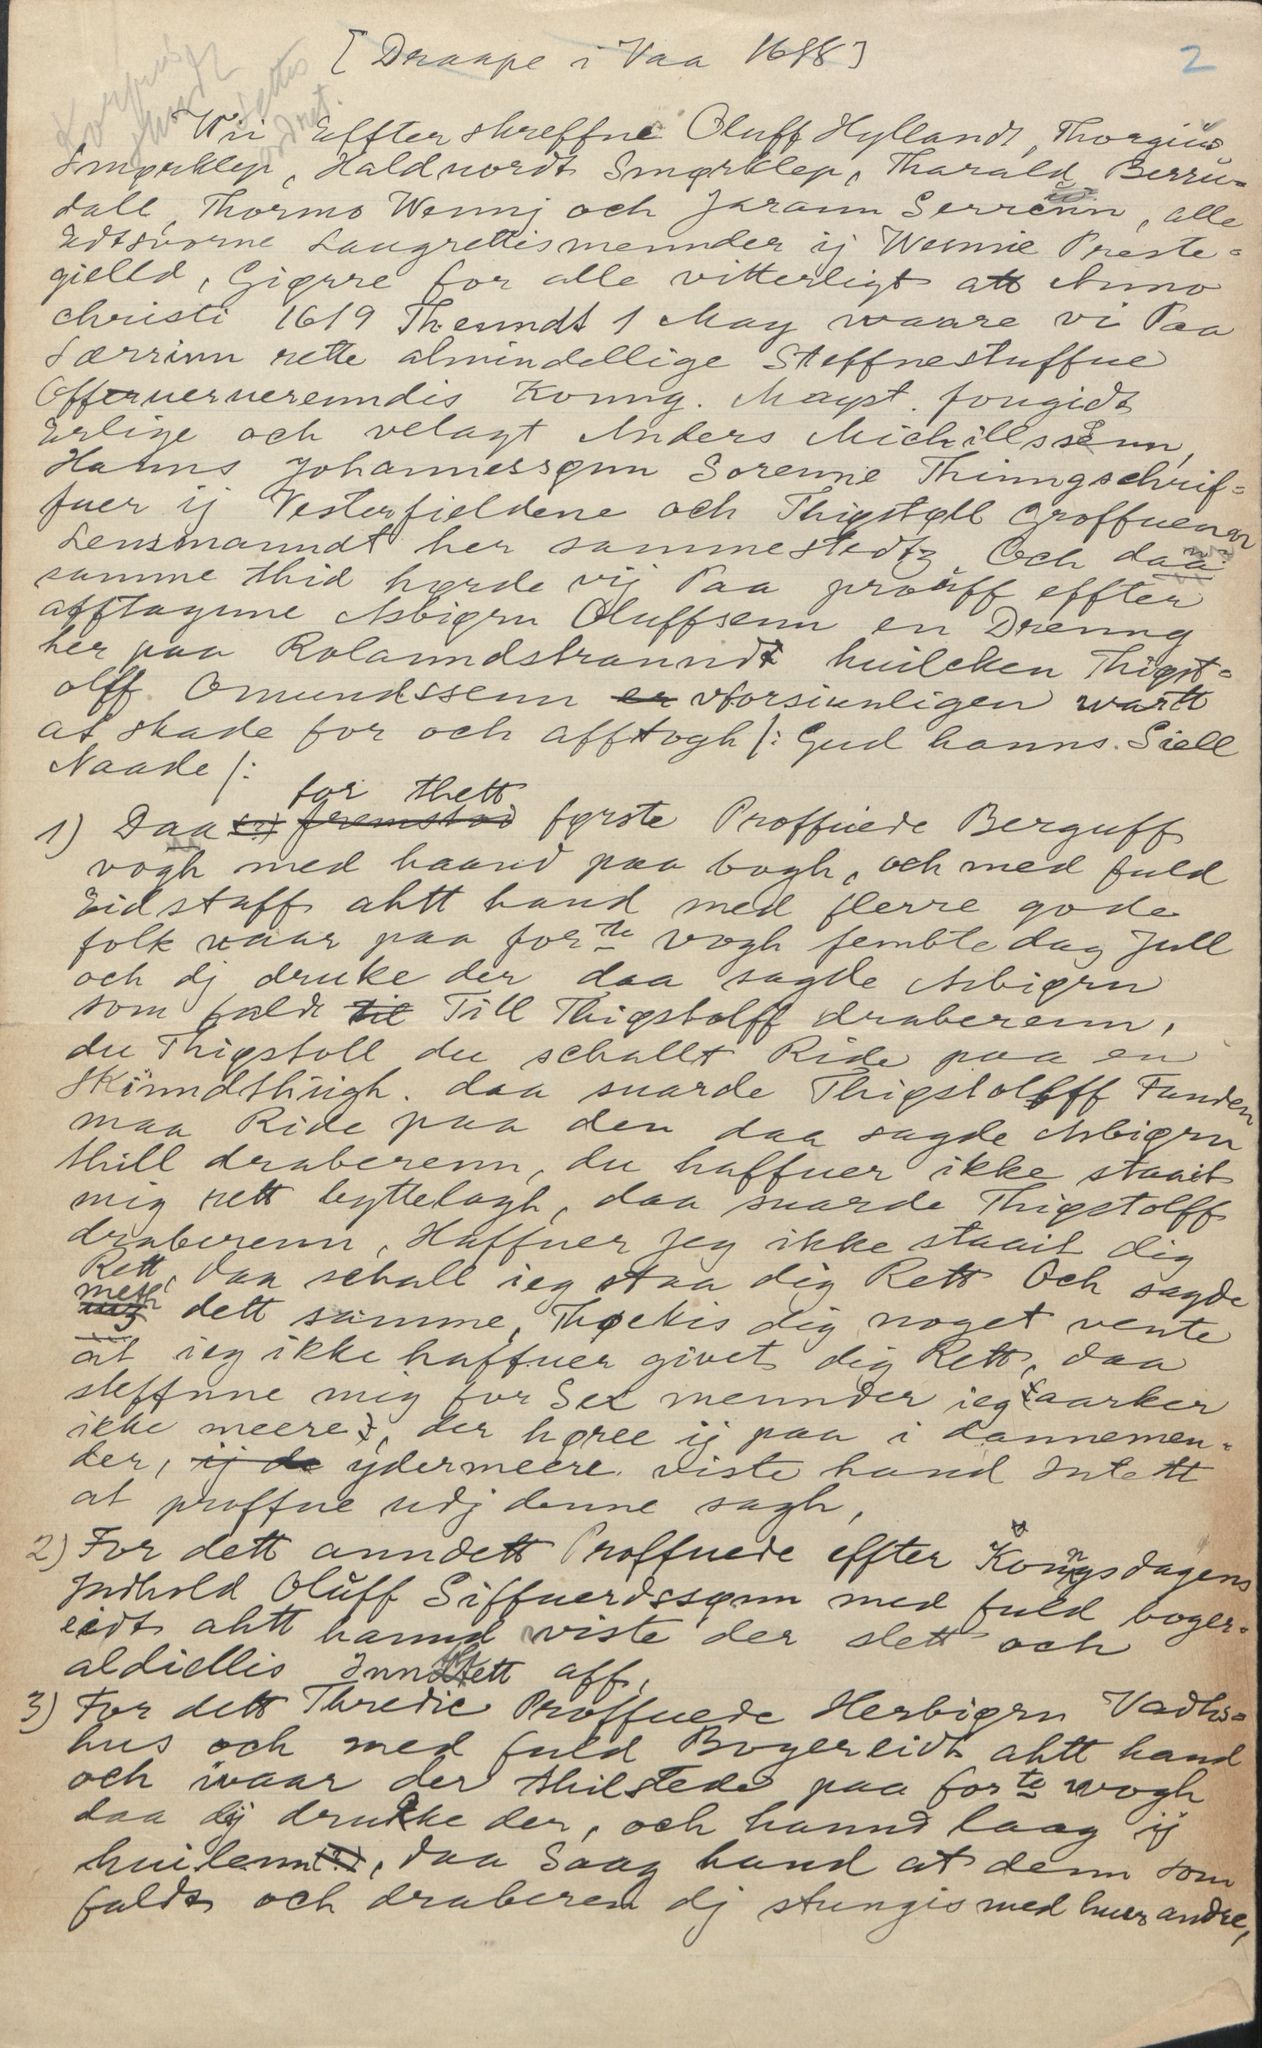 [Draape i Vaa 1618]
2
Wii Effterskreffne Oluff Hyllandt, Thorgiuus
Smørklep, Haldvordt Smørklep, Tharald Berru-
dall, Thormo Wennj och Jaramm Serrenn, alle
Edtsvorne Laugrettismennder ij Wennie Preste-
gielld, Giørre for alle vitterligt att Anno
christi 1619 Thenndt 1 May waare vi Paa
Særrinn rette almindellige Steffnestuffue
Offueruerenndis Konng. Mayst. fougidt
Erlige och velagt Anders Michillssenn,
Hanns Johannessønn Sorenne Thinngschrif-
fuer ij Vesterfieldene och Thiøstøll Groffuenn
Lensmanndt her sammestedtz Och daa
samme thid hørde vij Paa proüff effter
afftagnne Asbiørn Oluffsenn en Drenng
her paa Rolanndstranndt huilcken Thiøst-
olff Omundssenn er vforsiunligen wartt
at skade for och afftogh /: Gud hanns Siell
Naade /:
for thett
1) Daa fremstod første Proffuede Berguff
vogh med haand paa bogh, och med fuld
Eidstaff ahtt hand med flerre gode
folk waar paa forte vogh fembte dag Jull
och dj druke der daa sagde Asbiørn
som faldt til Till Thiøstolff draberenn,
du Thiøstoll du schallt Ride paa en
Skinndthiigh. daa suarde Thiøstolff Fanden
maa Ride paa den daa sagde Asbiørn
thill draberenn, du haffuer ikke staait
mig rett byttelagh, daa suarde Thiøstolff
draberenn, Haffuer jeg ikke staait dig
Rett, daa schall ieg staa dig Rett Och sagde
meth dett samme, Thøckis dig noget vente
at ieg ikke haffuer givet dig Rett, daa
steffnne mig for Sex mennder ieg aarker
ikke meere, der høree ij paa i dannemen-
der, ij da ydermeere viste hand Intett
at proffue udj denne sagh,
2) For dett anndett Proffuede effter Konngsdagens
Indhold Oluff Siffuerdssønn med fuld boger-
eidt ahtt hannd viste der slett och
aldiellis Inntett aff,
3) For dett Thredie Proffuede Herbiørn Vadhs-
hus och med fuld Bogereidt ahtt hand
och waar der thilstede paa forte wogh
daa dj drucke der, och hannd laag ij
huilenn, daa Saag hand at denn som
faldt och draberen dj stungis med huer andre,